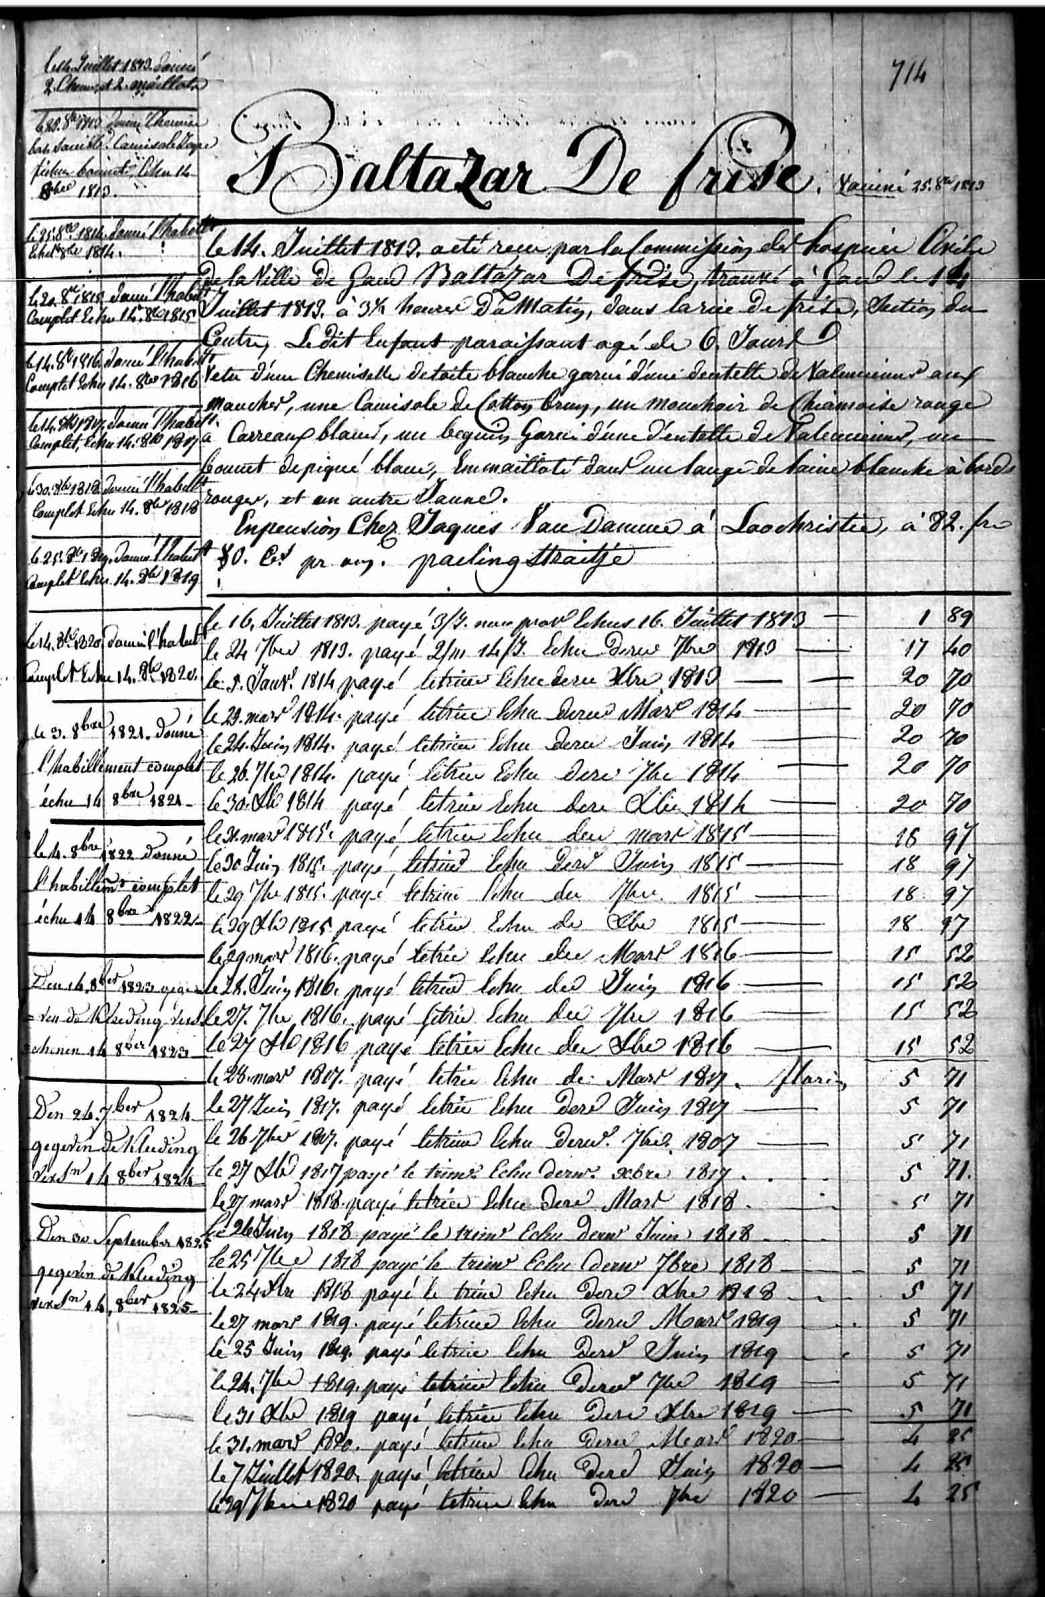 714
Baltazar De frise. Vacciné 25. 8bre 1813
le 14. Juillet 1813. Donné
2. Chemis et 2. Maillots
Donné Chemise
échu 14
8bre 1813.
le 25. 8bre 1814. Donné l'habillt
Echu 8bre 1814.
le 20. 8bre 1815 Donné l'habillt
Complet Echu 14. 8bre 1815
le 14. 8bre 1816. Donné l'habillt
Complet Echu 14. 8bre 1816
le 14. 8bre 1817. Donné l'habillt
Complet, Echu 14. 8bre 1817
le 30. 8bre 1818. Donné l'habillt
Complet Echu 14. 8bre 1818
le 25. 8bre 1819. Donné l'habillt
Complet Echu 14. 8bre 1819
le 14. 8bre 1820. Donné l'habillt
Complet Echu 14. 8bre 1820.
le 3. 8bre 1821. Donné
l'habillement complet
échu 14 8bre 1821
le 4. 8bre 1822 donné
l'habillemt complet
échu 14 8bre 1822
Den 14. 8ber 1823 gege=
=ven de Kleeding vers=
schenen 14 8ber 1823
Den 24. 7ber 1824
gegeven de Kleeding
versn 14 8ber 1824
Den 30 September 1825
gegeven de Kleeding
versn 14. 8ber 1825
le 14. Juillet 1813. acté recu par la Commission des hospices Civils
de la Ville de Gand Baltazar De frise, trouvé à Gand le 14
Juillet 1813. à 3 1/4 heures Du Matin, dans la rue de frise, Section du
Centre, Le dit Enfant paraissant agé de 6. Jours
Vetu d'une Chemisette de toile blanche garnie d'une dentelle de Valenciennes aux
manches, une Camisole de Cotton brun, un mouchoir de Chamoise rouge
à Carreaux blancs, un beguin Garni d'une dentelle de Valenciennes, un
bonnet de piqué blanc, Emmailloté dans un lange de laine blanche à bords
rouges, et un autre Jaune.
En pension Chez Jaques Van Damme à Loochristie, à 82. frs
80. Cs pr an. pacling straitje
le 16. Juillet 1813. payé 3/J. nour prov Echus 16. Juillet 1813 1 89
le 24 7bre 1813. payé 2/m 14/J. Echu Dern 7bre 1813 17 40
le 5. Janv. 1814 payé le trim Echu dern Xbre 1813 20 70
le 29. mars 1814. payé le trim Echu dern Mars 1814 20 70
le 24. Juin 1814. payé le trim Echu dern Juin 1814 20 70
le 26. 7bre 1814. payé le trim Echu dern 7bre 1814 20 70
le 30. Xbre 1814 payé le trim Echu dern Xbre 1814 20 70
le 31 mars 1815. payé le trim Echu der mars 1815 18 97
le 30 Juin 1815. payé le trim Echu Dern Juin 1815 18 97
le 29 7bre 1815. payé le trim Echu der 7bre 1815 18 97
le 29 Xbre 1815 payé le trim Echu de Xbre 1815 18 97
le 29 mars 1816. payé le trim Echu der Mars 1816 15 52
le 28. Juin 1816. payé le trim Echu der Juin 1816 15 52
le 27. 7bre 1816. payé le trim Echu der 7bre 1816 15 52
le 27 Xbre 1816 payé le trim Echu der Xbre 1816 15 52
le 28. mars 1817. payé le trim Echu de Mars 1817. florins 5 71
le 27 Juin 1817. payé le trim Echu Dern Juin 1817 5 71
le 26 7bre 1817. payé le trim Echu Dern. 7bre. 1807 5 71
le 27 Xbre 1817 payé le trimr. Echu dernr. xbre 1817. 5 71.
le 27 mars 1818. payé le trim Echu Dern Mars 1818. 5 71
le 26 Juin 1818 payé le trimr Echu dernr Juin 1818 5 71
le 25 7bre 1818 payé le trimr Echu dernr 7bre 1818 5 71
le 24 Xbre 1818 payé le trim Echu Dern Xbre 1818 5 71
le 27 mars 1819. payé le trim Echu Dern Mars 1819 5 71
le 25 Juin 1819. payé le trim Echu Dern Juin 1819 5 71
le 24. 7bre 1819. payé le trim Echu Dern 7bre 1819 5 71
le 31 Xbre 1819 payé le trim Echu Dern Xbre 1819 5 71
le 31. mars 1820. payé le trim Echu Dern Mars 1820 4 25
le 7 Juillet 1820. payé le trim Echu Dern Juin 1820 4 25
le 29 7bre 1820 payé le trim Echu Dern 7bre 1820 4 25